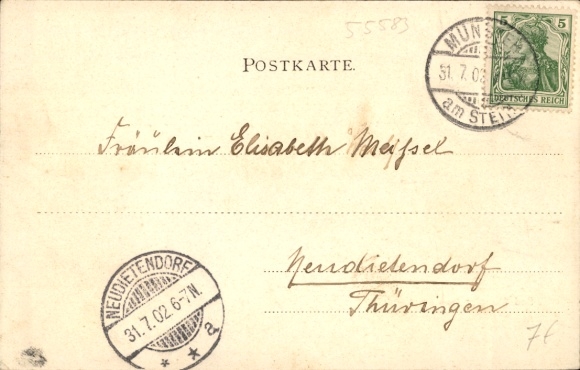 55583
MÜNSTER
31.7.02
am STEIN
5 5
DEUTSCHES REICH
POSTKARTE.
Fräulein Elisabeth Meissel
Neudietendorf
Thüringen
NEUDIETENDORF
31.7.02 6-7N.
* * a